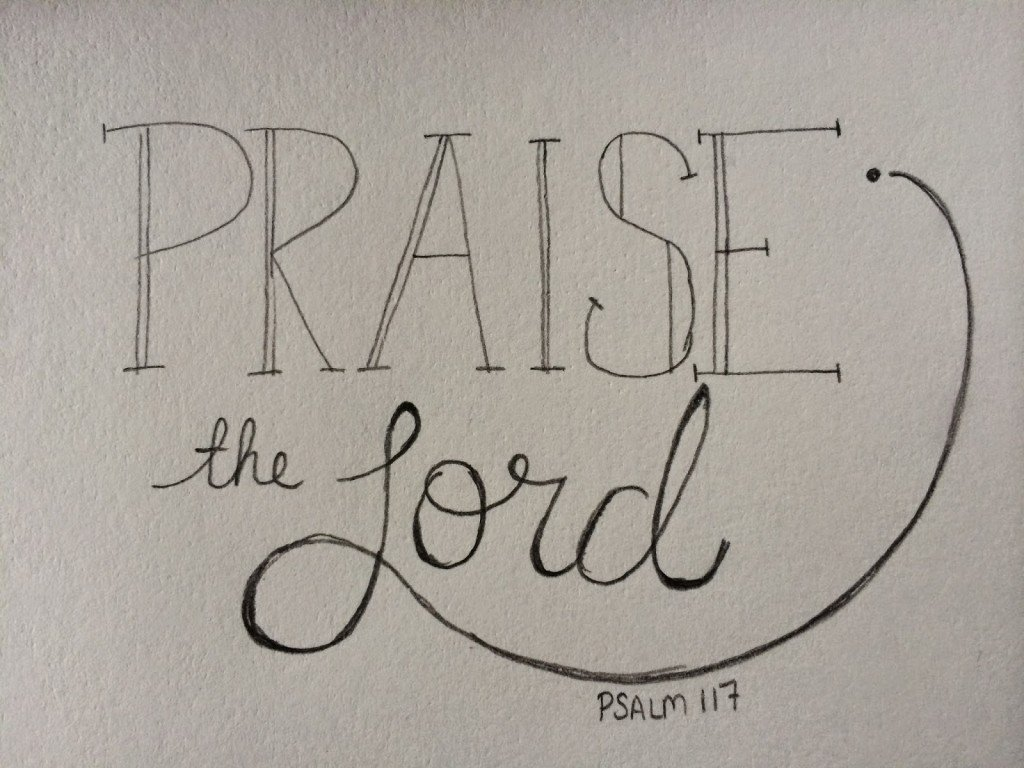 PRAISE
the Lord
PSALM 117